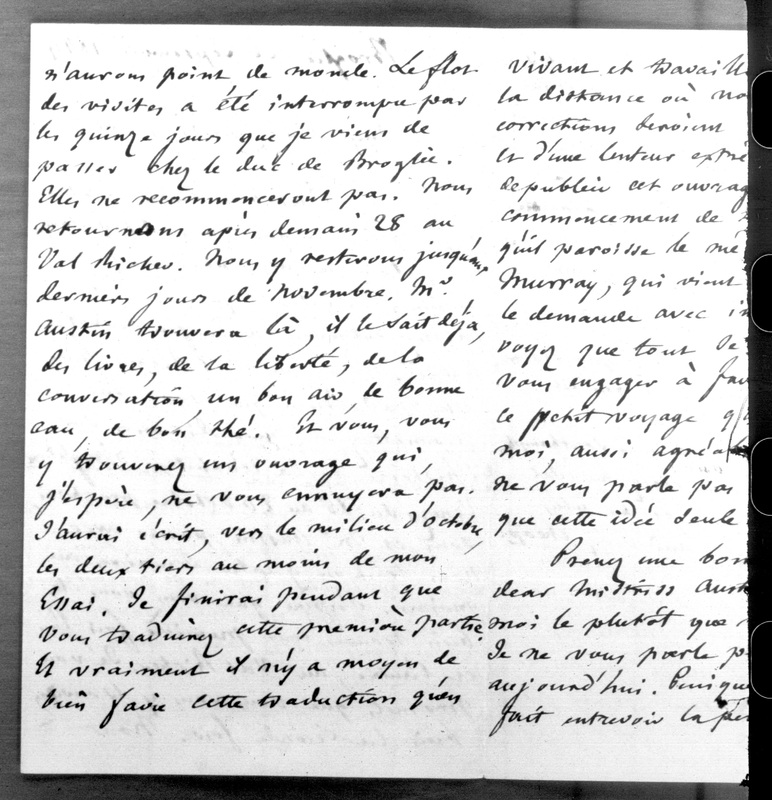 n'aurons point de monde. Le flot
des visites a été interrompu par
les quinze jours que je viens de
passer chez le duc de Broglie.
Elles ne recommenceront pas. Nous
retournons après demain 28 au
Val Richer. Nous y resterons jusqu'aux
derniers jours de novembre. Mr.
Austin trouvera là, il le sait déja,
des livres, de la liberté, de la
conversation, un bon air, de bonne
eau, de bon thé. Et vous, vous
y trouverez un ouvrage qui,
j'espère, ne vous ennuyera pas.
J'aurai écrit, vers le milieu d'Octobre,
les deux tiers au moins de mon
Essai. Je finirai pendant que
vous traduirez cette première partie.
Et vraiment il n'y a moyen de
bien faire cette traduction qu'en
vivant et travaill
la distance où no
corrections seroient
et d'une lenteur extrê
de publier cet ouvrag
commencement de
qu'il paroisse le mê
Murray, qui vient
le demande avec in
voyez que tout se
vous engager à fai
ce petit voyage q
moi, aussi agréa
ne vous parle pas
que cette idée seule
Prenez une bon
dear Mistriss Aust
moi le plutôt que
Je ne vous parle p
aujourd'hui. Puisque
fait entrevoir la per